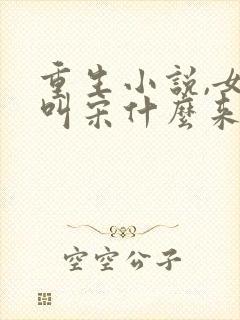 重生小説,女
叫宋什麼来
空空公子